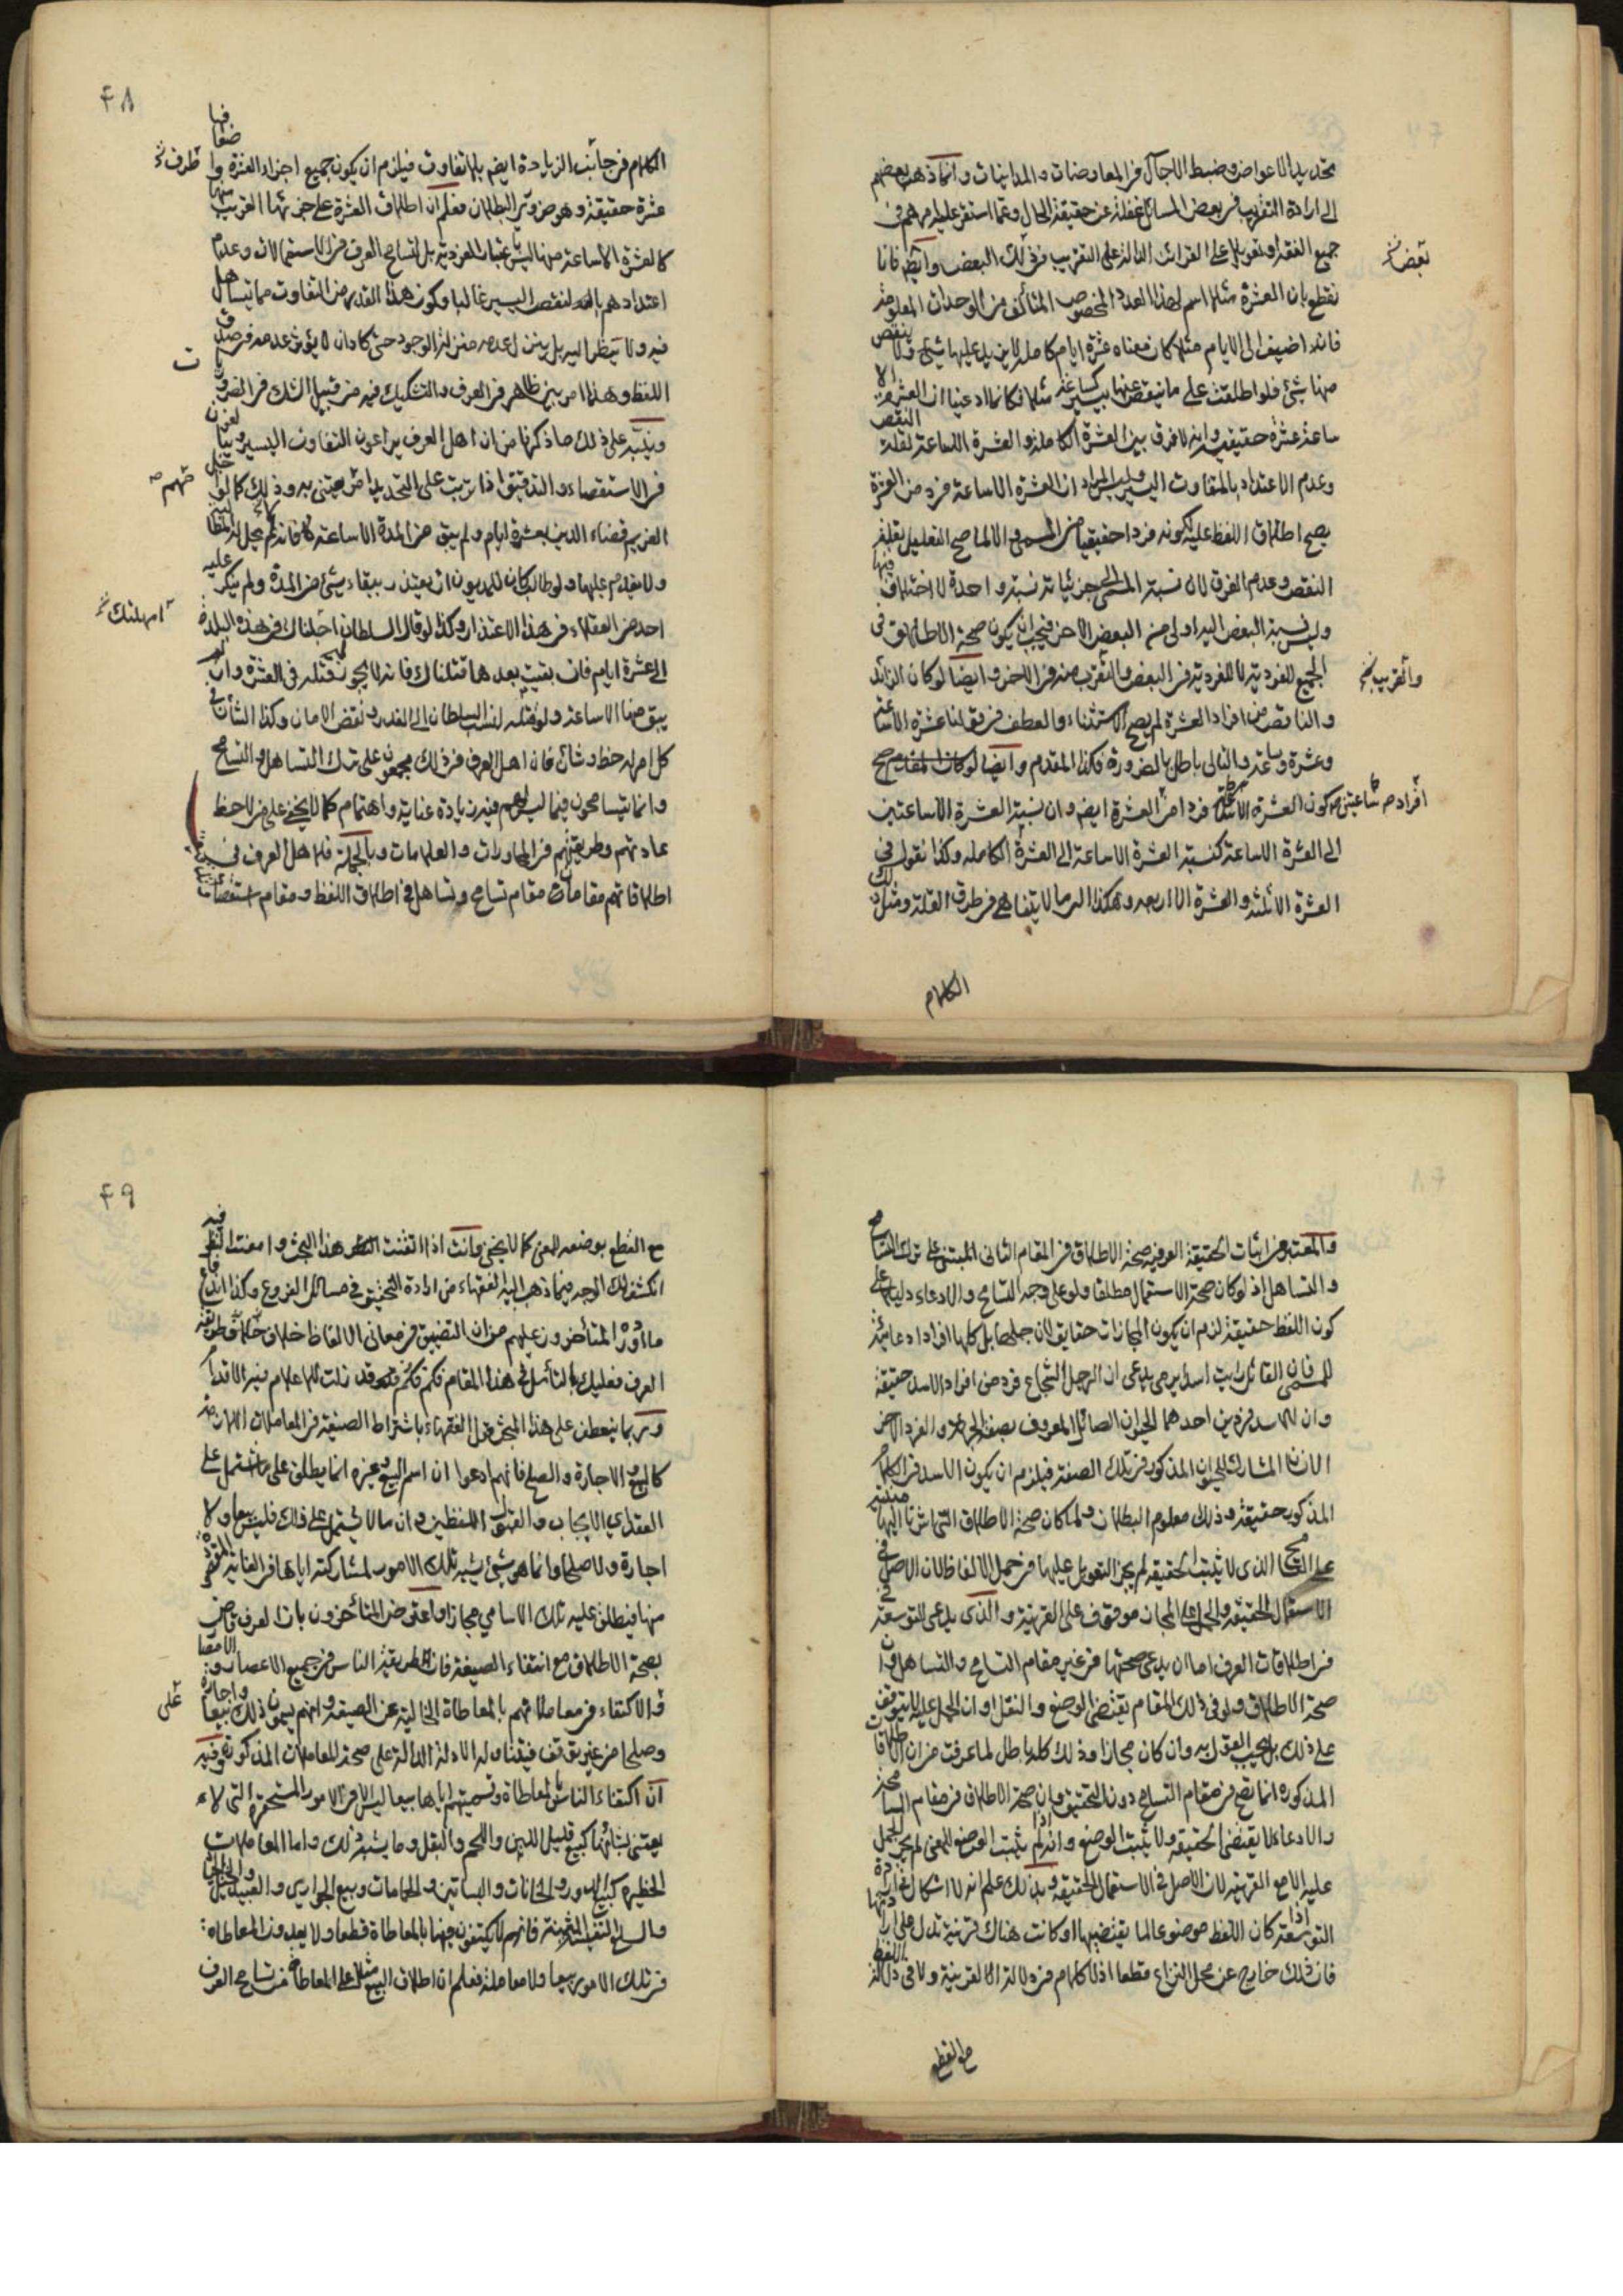 تحديد الاعواض وضبط الاجال في المعاوضات والمداينات وانما ذهب بعضهم
الى ارادة التقريب في بعض المسائل غفلة عن حقيقة الحال وعما استقر عليه رأيهم في
جميع الفقه او تعويلا على القرائن الدالة على التقريب في ذلك البعض وايضا فانا
بعض
نقطع بان العشرة مثلا اسم لهذا العدد المخصوص المتألف من الوحدات المعلومة
فاذا اضيف الى الايام مثلا كان معناه عشرة ايام كاملة لا يزيد عليها شئ ولا ينقص
منها شئ فلو اطلقت على ما نقص عنها بيسير كساعة مثلا فكانما ادعينا ان العشرة الا
ساعة عشرة حقيقية وانه لا فرق بين العشرة الكاملة والعشرة الا ساعة لقلة النقص
وعدم الاعتداد بالتفاوت اليسير وليس المراد ان العشرة الا ساعة فرد من العشرة
يصح اطلاق اللفظ عليه لكونه فردا حقيقيا من المسمى والا لما صح التعليل بقلة
النقص وعدم الفرق لان نسبة المسمى الى جزئياته نسبة واحدة لا اختلاف فيها
وليس نسبة البعض اليه اولى من البعض الاخر فيجب ان يكون صحة الاطلاق في
الجميع للفردية لا للفردية في البعض والتقرب منه في الاخر وايضا لو كان الزائد
والتقريب
والناقص من افراد العشرة لم يصح الاستثناء والعطف في قولنا عشرة الا ساعة
وعشرة وساعة والتالى باطل بالضرورة فكذا المقدم وايضا لو كان
كون العشرة الا ساعتين فردا من العشرة ايضا وان نسبة العشرة الا ساعتين
الى العشرة الا ساعة كنسبة العشرة الا ساعة الى العشرة الكاملة وكذا نقول في
العشرة الا ثلثة والعشرة الا اربعة وهكذا الى ما لا يتناهى في طرف القلة ومثل ذلك
الكلام
۴۸
الكلام في جانب الزيادة ايضا بلا تفاوت فيلزم ان يكون جميع اجزاء العشرة
عشرة حقيقة وهو ضروري البطلان فعلم ان اطلاق العشرة على جزئها القريب منها
كالعشرة الا ساعة منها ليس باعتبار الفردية بل لتسامح العرف في الاستعمالات وعدم
اعتدادهم بالنقص اليسير غالبا وكون هذا القدر من التفاوت مما يتساهل
فيه ولا ينظر اليه بل ينزل عدمه منزلة الوجود حتى كاد ان لا يؤثر عدمه في صدق
اللفظ وهذا امر بين ظاهر في العرف والتشكيك فيه من قبيل الشك في الضروريات
وينبه على ذلك ما ذكرنا من ان اهل العرف يراعون التفاوت اليسير ويبالغون
في الاستقصاء والتدقيق اذا ترتب على التحديد امر يعتنى به وذلك كما لو
الغريم قضاء الدين بعشرة ايام ولم يبق من المدة الا ساعة فانه لم يحل له
ولا يقدم عليها ولو طالب كان للمديون ان يعتذر ببقاء شئ من المدة ولم ينكر عليه
احد من العقلاء في هذا الاعتذار وكذا لو قال السلطان اجلناك في هذه البلدة
امهلتك
الى عشرة ايام فان بقيت بعدها قتلناك فانه لا يجوز قتله في العشرة وان لم
يبق منها الا ساعة ولو قتله لنسب السلطان الى الغدر ونقض الامان وكذا الشأن في
كل امر له خطر وشأن فان اهل العرف في ذلك مجمعون على ترك التساهل والتسامح
وانما يتسامحون فيما ليس لهم فيه زيادة عناية واهتمام كما لا يخفى على من لاحظ
عاداتهم وطريقتهم في المحاورات والعلامات وبالجملة فلاهل العرف في
اطلاقاتهم مقامان مقام تسامح وتساهل في اطلاق اللفظ ومقام استقصاء
والمعتبر في اثبات الحقيقة العرفية صحة الاطلاق في المقام الثانى المبتنى على ترك التسامح
والتساهل اذ لو كان صحة الاستعمال مطلقا ولو على وجه التسامح والادعاء دليلا على
كون اللفظ حقيقة لزم ان يكون المجازات حقايق لان جلها بل كلها افراد ادعائية
للمسمى فان القائل رايت اسدا يرمى يدعى ان الرجل الشجاع فرد من افراد الاسد حقيقة
وان للاسد فردين احدهما الحيوان الصائل المعروف بصفة الجرءة والفرد الاخر
الانسان المشارك للحيوان المذكور في تلك الصفة فيلزم ان يكون الاسد في الكلام
المذكور حقيقة وذلك معلوم البطلان ولما كان صحة الاطلاق التى اشرنا اليها مبنية
على التسامح الذى لا يثبت الحقيقة لم يجز التعويل عليها في حمل الالفاظ لان الاصل في
الاستعمال الحقيقة والحمل على المجاز موقوف على القرينة والذى يدعى التوسعة في
في اطلاقات العرف اما ان يدعى صحتها في غير مقام التسامح والتساهل او ان
صحة الاطلاق ولو في ذلك المقام يقتضى الوضع والنقل او ان الحمل عليه لا يتوقف
على ذلك بل يجب القول به وان كان مجازا وذلك كله باطل لما عرفت من ان الاطلاقات
المذكورة انما تصح في مقام التسامح دون التحقيق وان صحة الاطلاق في مقام المسامحة
والادعاء لا يقتضى الحقيقة ولا يثبت الوضع وانه اذا لم يثبت الوضع للمعنى لم يجز الحمل
عليه الا مع القرينة لان الاصل في الاستعمال الحقيقة وبذلك علم انه لا اشكال في ارادة
التوسعة اذا كان اللفظ موضوعا لما يقتضيها او كانت هناك قرينة تدل على ارادتها
فان ذلك خارج عن محل النزاع قطعا اذ لا كلام في دلالة القرينة ولا في دلالة اللفظ
مع القطع
۴۹
مع القطع بوضعه للمعنى كما لا يخفى وانت اذا اتقنت هذا البحث وامعنت النظر فيه
انكشف لك الوجه فيما ذهب اليه الفقهاء من ارادة التحقيق في مسائل الفروع وكذا اندفاع
ما اورده المتأخرون عليهم من ان التضييق في معانى الالفاظ خلاف طريقة
العرف فعليك بالتأمل في هذا المقام فكم وكم قد زلت للاعلام فيه الاقدام
وربما ينعطف على هذا المبحث قول الفقهاء باشتراط الصيغة في المعاملات اللازمة
كالبيع والاجارة والصلح فانهم ادعوا ان اسم البيع وغيره انما يطلق على ما يشتمل على
العقد اي الايجاب والقبول اللفظين وان ما لا يشتمل على ذلك فليس بيعا ولا
اجارة ولا صلحا وانما هو شئ يشبه تلك الامور لمشاركته اياها في الغاية المقصودة
منها فيطلق عليه تلك الاسامي مجازا واعترض المتأخرون بان العرف قاض
بصحة الاطلاق مع انتفاء الصيغة فان طريقة الناس في جميع الاعصار والامصار
على الاكتفاء في معاملاتهم بالمعاطاة الخالية عن الصيغة وانهم يسمون ذلك بيعا واجارة
وصلحا من غير توقف فيتناوله الادلة الدالة على صحة المعاملات المذكورة وفيه
ان اكتفاء الناس بالمعاطاة وتسميتهم اياها بيعا ليس الا في الامور المستحقرة التى لا
يعتنى بشأنها كبيع قليل اللبن واللحم والبقل وما يشبه ذلك واما المعاملات
الخطيرة كبيع الدور والخانات والبساتين والحمامات وبيع الجوارى والعبيد
والسلع النفيسة الثمينة فانهم لا يكتفون فيها بالمعاطاة قطعا ولا يعدون المعاطاة
في تلك الامور بيعا ولا معاملة فعلم ان اطلاق البيع مثلا على المعاطاة من تسامح العرف